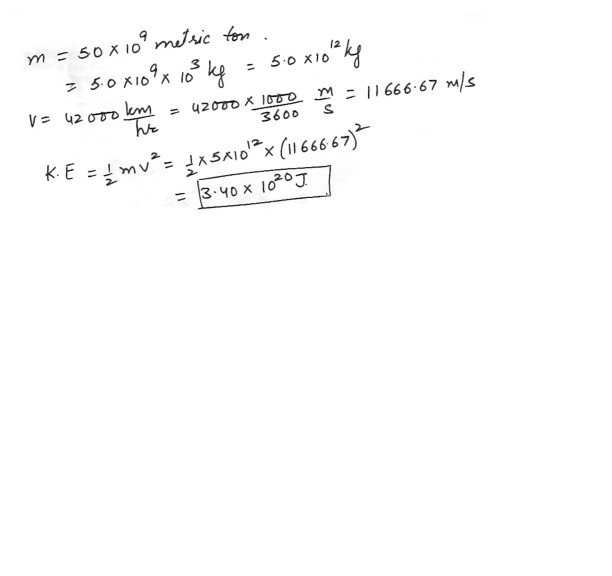 m = 5.0 × 10⁹ metric ton.
= 5.0 × 10⁹ × 10³ kg = 5.0 × 10¹² kg
V = 42000 km/hr = 42000 × 1000/3600 m/s = 11666.67 m/s
K.E = 1/2 mv² = 1/2 × 5×10¹² × (11666.67)²
= 3.40 × 10²⁰ J.